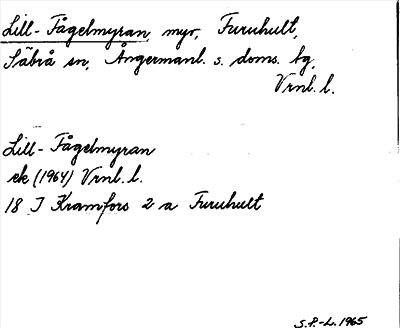 Lill-Fågelmyran, myr, Furuhult,
Säbrå sn, Ångermanl. s. doms. bg,
Vrnl. l.
Lill-Fågelmyran
ek (1964) Vrnl. l.
18 J Kramfors 2 a Furuhult
S.P.-L. 1965